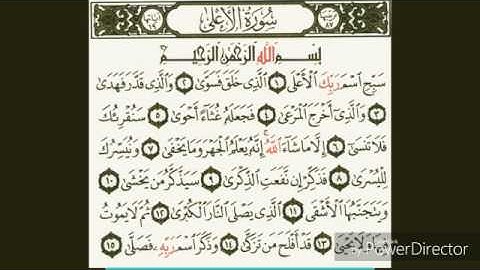 سُورَةُ الأَعْلَىٰ
بِسْمِ اللَّهِ الرَّحْمَٰنِ الرَّحِيمِ
سَبِّحِ اسْمَ رَبِّكَ الْأَعْلَى ١ الَّذِي خَلَقَ فَسَوَّىٰ ٢ وَالَّذِي قَدَّرَ فَهَدَىٰ
٣ وَالَّذِي أَخْرَجَ الْمَرْعَىٰ ٤ فَجَعَلَهُ غُثَاءً أَحْوَىٰ ٥ سَنُقْرِئُكَ
فَلَا تَنسَىٰ ٦ إِلَّا مَا شَاءَ اللَّهُ إِنَّهُ يَعْلَمُ الْجَهْرَ وَمَا يَخْفَىٰ ٧ وَنُيَسِّرُكَ
لِلْيُسْرَىٰ ٨ فَذَكِّرْ إِن نَّفَعَتِ الذِّكْرَىٰ ٩ سَيَذَّكَّرُ مَن يَخْشَىٰ ١٠
وَيَتَجَنَّبُهَا الْأَشْقَى ١١ الَّذِي يَصْلَى النَّارَ الْكُبْرَىٰ ١٢ ثُمَّ لَا يَمُوتُ
فِيهَا وَلَا يَحْيَىٰ ١٣ قَدْ أَفْلَحَ مَن تَزَكَّىٰ ١٤ وَذَكَرَ اسْمَ رَبِّهِ فَصَلَّىٰ ١٥
PowerDirector